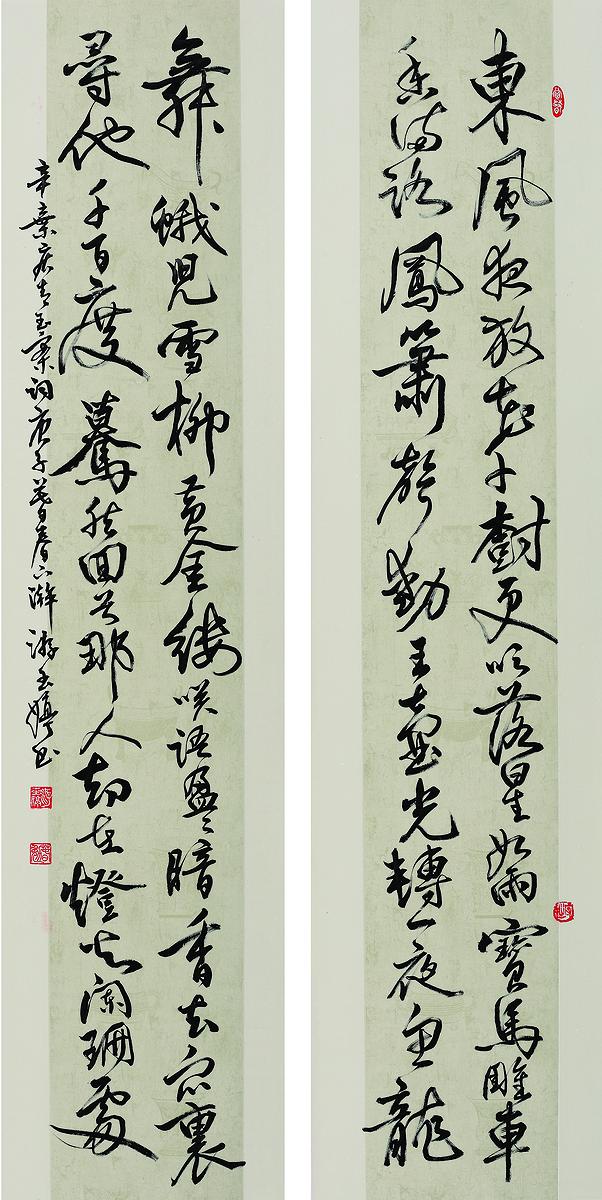 東風夜放花千樹更吹落星如雨寶馬雕車
香滿路鳳簫聲動玉壺光轉一夜魚龍
舞蛾兒雪柳黃金縷笑語盈々暗香去眾裏
尋他千百度驀然回首那人却在燈火闌珊處
辛棄疾青玉案詞庚子暮春下澣游玉書